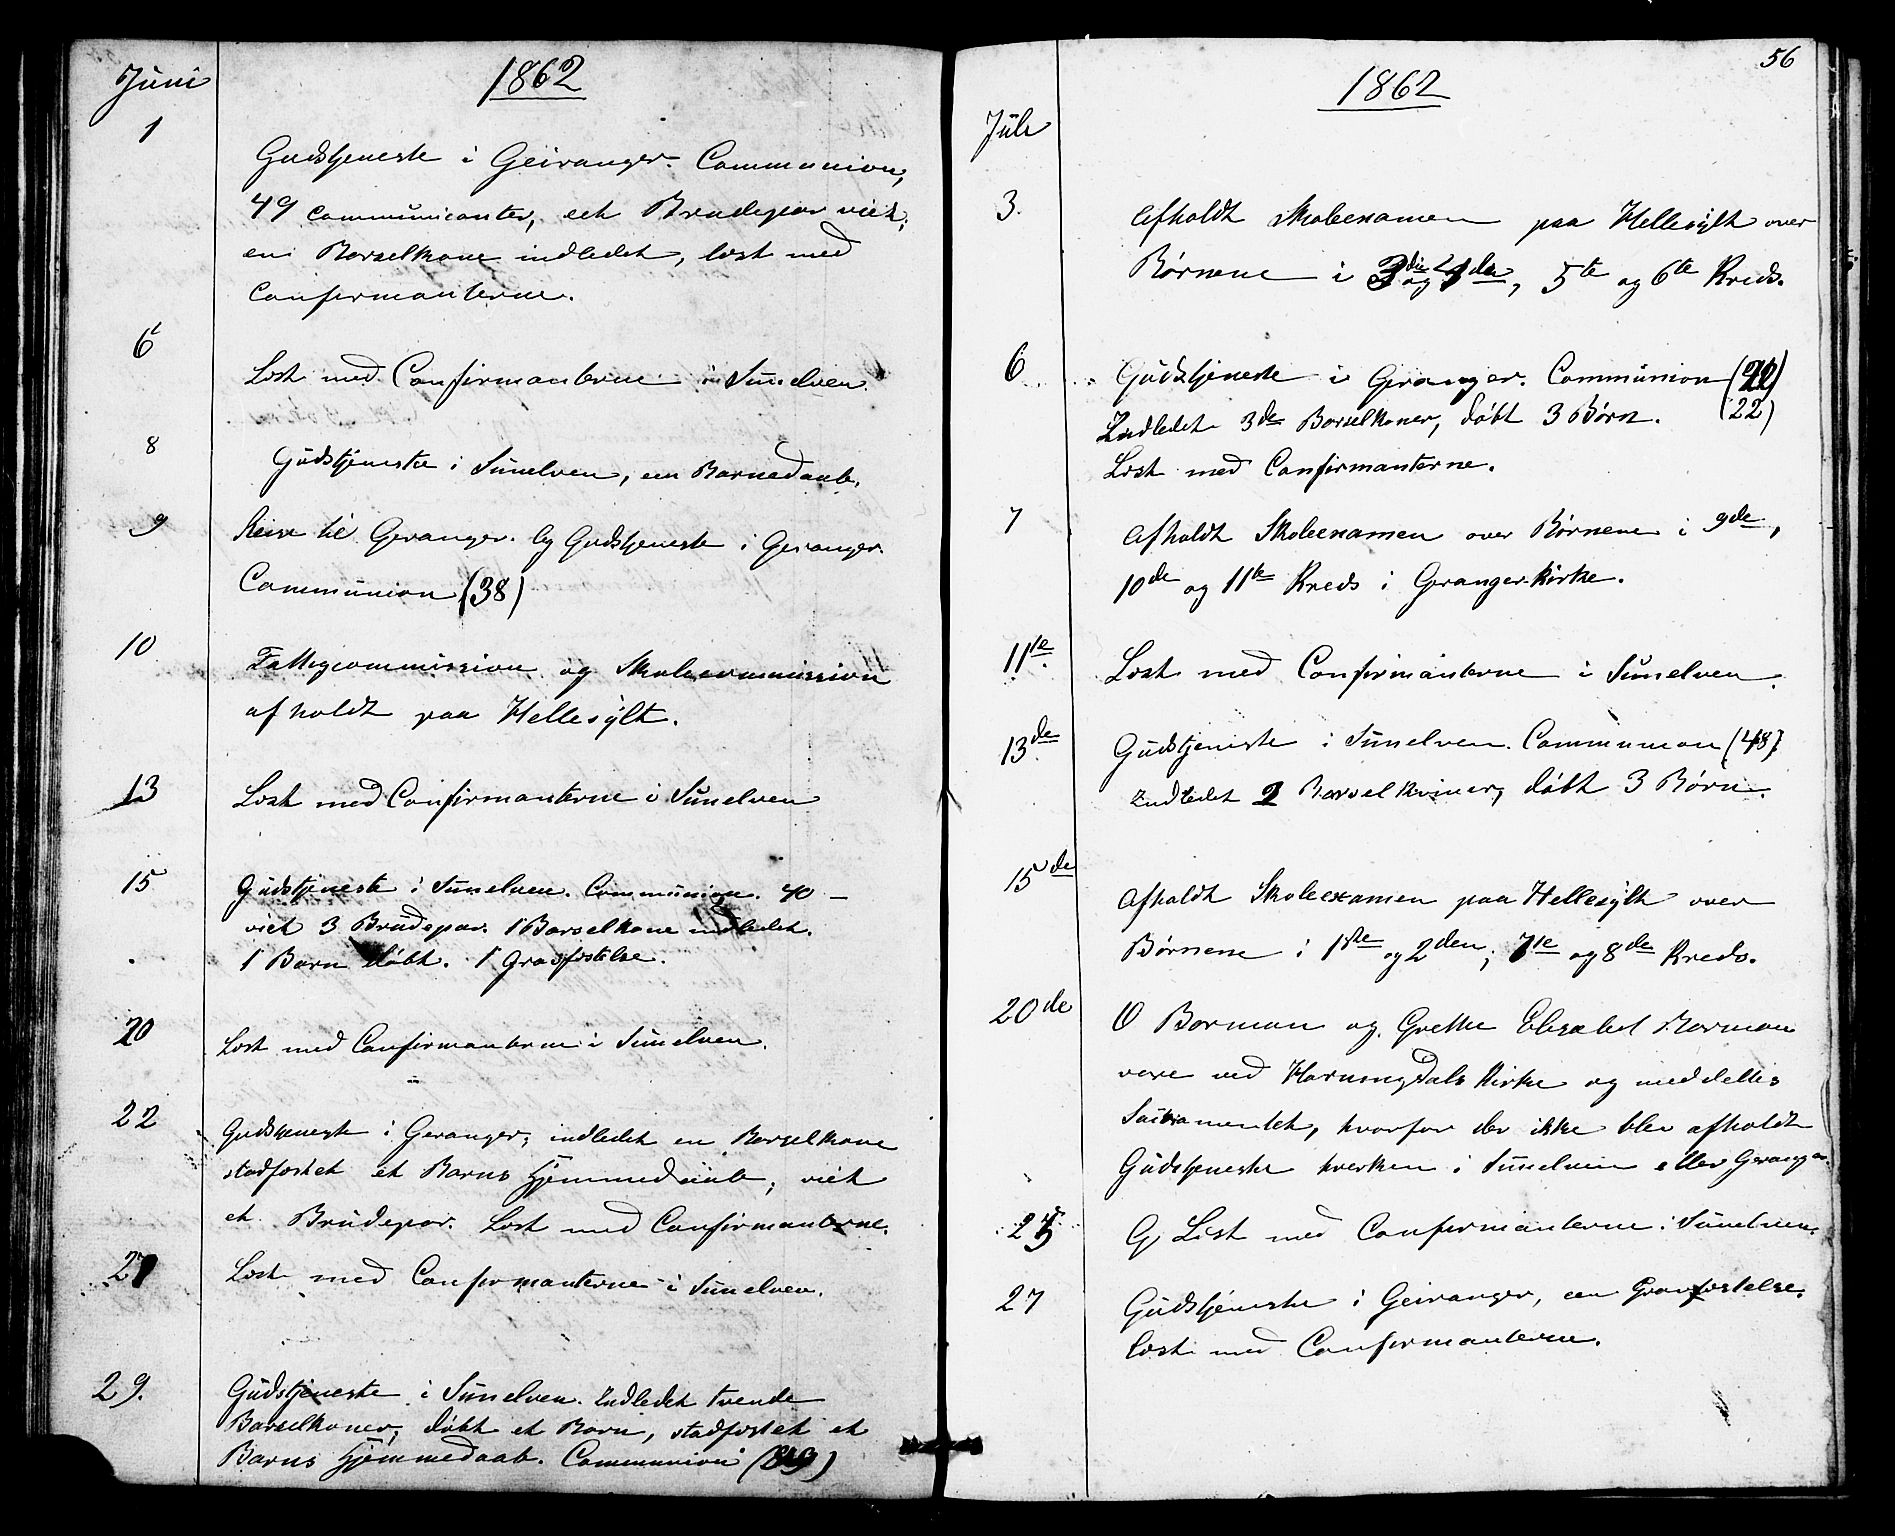 Juni 1862
1 Gudstjeneste i Geiranger. Communion,
49 Communicanter, eet Brudepar viet,
en Barselkone indledet, læst med
Confirmanterne.
6 Læst med Confirmanterne i Sunelven.
8 Gudstjeneste i Sunelven, een Barnedaab.
9 Reise til Geranger. Og Gudstjeneste i Geranger.
Communion (38)
10 Fattigcommission og Skolecommission
afholdt paa Hellesylt.
13 Læst med Confirmanterne i Sunelven
15 Gudstjeneste i Sunelven. Communion. 40 –
viet 3 Brudepar. 1 Barselkone indledet.
1 Barn døbt. 1 Gravfæstelse.
20 Læst med Confirmanterne i Sunelven.
22 Gudstjeneste i Geranger, indledet en Barselkone
stadfæstet et Barns Hjemmedaab, viet
et Brudepar. Læst med Confirmanterne.
27 Læst med Confirmanterne i Sunelven.
29. Gudstjeneste i Sunelven. Indledet tvende
Barselkoner, døbt et Barn, stadfæstet et
Barns Hjemmedaab. Communion
56
1862
Juli
3. Afholdt Skoleexamen paa Hellesylt over
Børnene i 3die og 4de, 5te og 6te Kreds.
6 Gudstjeneste i Geranger. Communion
Indledet 3de Barselkoner, døbt 3 Børn. (22)
Læst med Confirmanterne.
7 Afholdt Skoleexamen over Børnene i 9de,
10de og 11te Kreds i Geranger Kirke.
11te Læst med Confirmanterne i Sunelven.
13de Gudstjeneste i Sunelven. Communion (48)
Indledet 2 Barselkoner, døbt 3 Børn.
15de Afholdt Skoleexamen paa Hellesylt over
Børnene i 1ste og 2den, 7de og 8de Kreds.
20de O Borman og Grethe Elisabet Borman
vare ved Horningdals Kirke og meddeltes
Sacramentet, hvorfor der ikke blev afholdt
Gudstjeneste hverken i Sunelven eller Geranger.
25 G Læst med Confirmanterne i Sunelven.
27 Gudstjeneste i Geiranger, een Gravfæstelse.
læst med Confirmanterne.